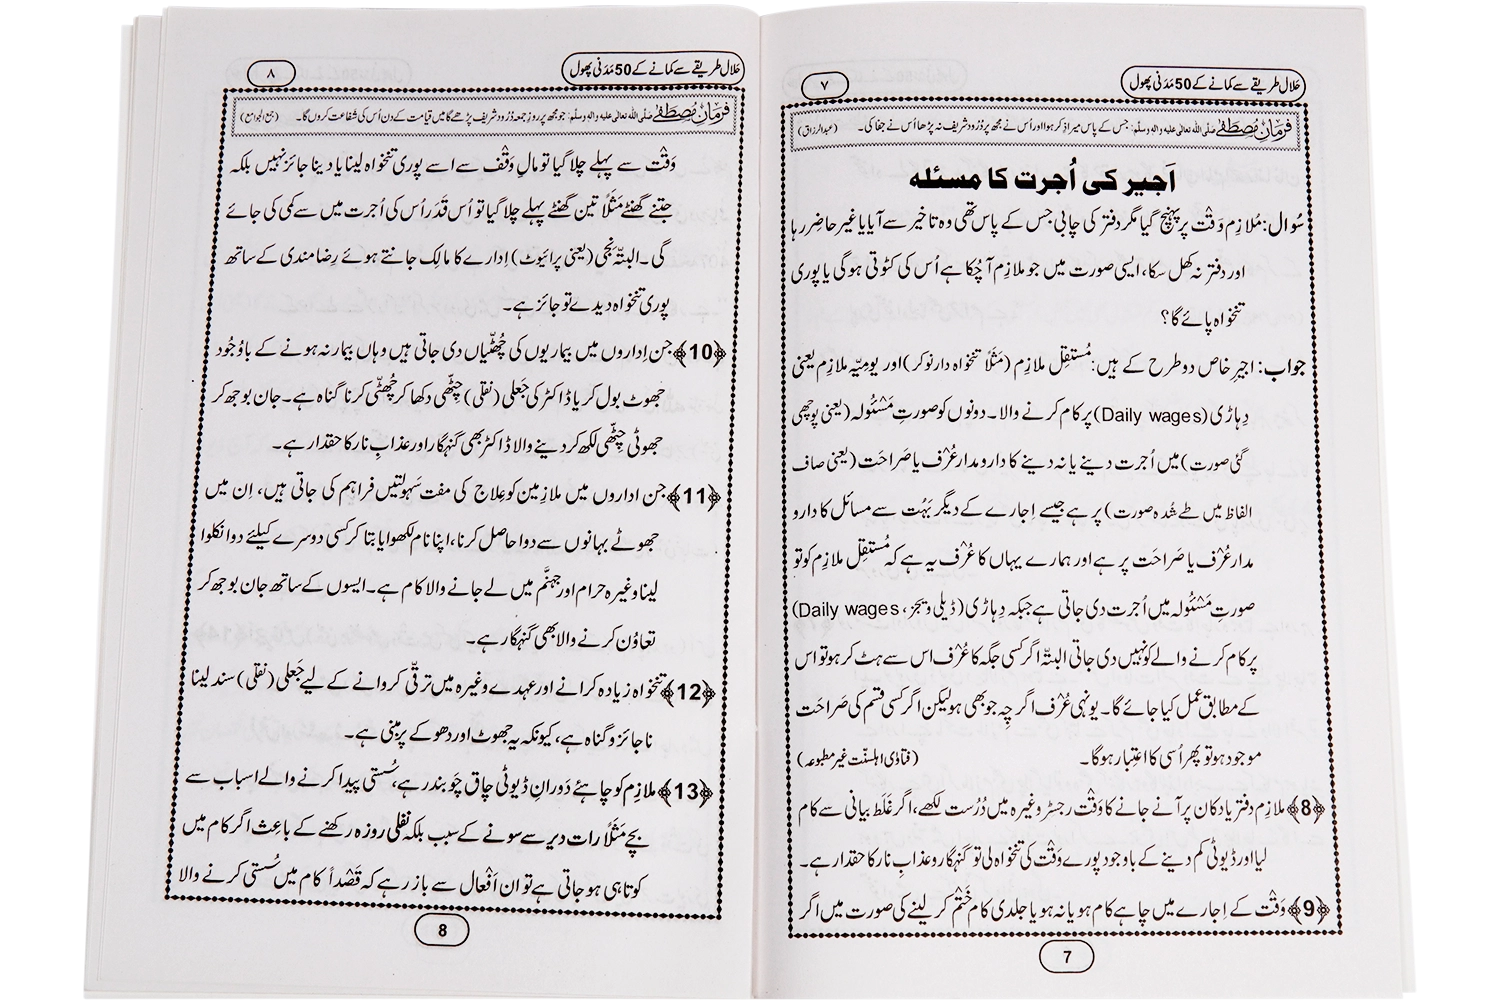 حلال طریقے سے کمانے کے 50 مَدَنی پھول
۷
فرمانِ مُصطَفٰے صلی اللہ تعالیٰ علیہ والہ وسلم: جس کے پاس میرا ذکر ہوا اور اُس نے مجھ پر دُرُود شریف نہ پڑھا اُس نے جفا کی۔ (عبدالرزاق)
اَجیر کی اُجرت کا مسئلہ
سُوال: مُلازِم وَقْت پر پہنچ گیا مگر دفتر کی چابی جس کے پاس تھی وہ تاخیر سے آیا یا غیر حاضر رہا
اور دفتر نہ کھل سکا، ایسی صورت میں جو ملازِم آ چُکا ہے اُس کی کٹوتی ہو گی یا پوری
تنخواہ پائے گا؟
جواب: اجیرِ خاص دو طرح کے ہیں: مُستقِل ملازِم (مَثَلاً تنخواہ دار نوکر) اور یومیّہ ملازِم یعنی
دِہاڑی (Daily wages) پر کام کرنے والا۔ دونوں کو صورتِ مَسْئُولہ (یعنی پوچھی
گئی صورت) میں اُجرت دینے یا نہ دینے کا دارومدار عُرْف یا صَراحَت (یعنی صاف
الفاظ میں طے شُدہ صورت) پر ہے جیسے اِجارے کے دیگر بَہُت سے مسائل کا دارو
مدار عُرْف یا صَراحَت پر ہے اور ہمارے یہاں کا عُرْف یہ ہے کہ مُستقِل ملازِم کو تو
صورتِ مَسْئُولہ میں اُجرت دی جاتی ہے جبکہ دِہاڑی (ڈیلی ویجز، Daily wages)
پر کام کرنے والے کو نہیں دی جاتی البتّہ اگر کسی جگہ کا عُرْف اس سے ہٹ کر ہو تو اس
کے مطابق عمل کیا جائے گا۔ یونہی عُرْف اگرچہ جو بھی ہو لیکن اگر کسی قسم کی صَراحَت
موجود ہو تو پھر اُسی کا اعتبار ہو گا۔ (فتاوٰی اہلسنّت غیر مطبوعہ)
﴿8﴾ ملازِم دفتر یا دکان پر آنے جانے کا وَقْت رجسٹر وغیرہ میں دُرُست لکھے، اگر غَلَط بیانی سے کام
لیا اور ڈیوٹی کم دینے کے باوجود پورے وَقْت کی تنخواہ لی تو گنہگار و عذابِ نار کا حقدار ہے۔
﴿9﴾ وَقْت کے اِجارے میں چاہے کام ہو یا نہ ہو یا جلدی کام خَتْم کر لینے کی صورت میں اگر
7
حلال طریقے سے کمانے کے 50 مَدَنی پھول
۸
فرمانِ مُصطَفٰے صلی اللہ تعالیٰ علیہ والہ وسلم: جو مجھ پر روزِ جمعہ دُرُود شریف پڑھے گا میں قیامت کے دن اُس کی شفاعت کروں گا۔ (جمع الجوامع)
وَقْت سے پہلے چلا گیا تو مالِ وَقْف سے اسے پوری تنخواہ لینا یا دینا جائز نہیں بلکہ
جتنے گھنٹے مَثَلاً تین گھنٹے پہلے چلا گیا تو اُس قَدَر اُس کی اُجرت میں سے کمی کی جائے
گی۔ البتّہ نَجی (یعنی پرائیوٹ) اِدارے کا مالِک جانتے ہوئے رِضا مندی کے ساتھ
پوری تنخواہ دیدے تو جائز ہے۔
﴿10﴾ جن اِداروں میں بیماریوں کی چُھٹّیاں دی جاتی ہیں وہاں بیمار نہ ہونے کے باوُجُود
جھوٹ بول کر یا ڈاکٹر کی جَعلی (نقلی) چِٹّھی دکھا کر چُھٹّی کرنا گناہ ہے۔ جان بوجھ کر
جھوٹی چِٹّھی لکھ کر دینے والا ڈاکٹر بھی گنہگار اور عذابِ نار کا حقدار ہے۔
﴿11﴾ جن اداروں میں ملازِمین کو عِلاج کی مفت سَہولتیں فراہم کی جاتی ہیں، اِن میں
جھوٹے بہانوں سے دوا حاصل کرنا، اپنا نام لکھوا یا بتا کر کسی دوسرے کیلئے دوا نکلوا
لینا وغیرہ حرام اور جہنَّم میں لے جانے والا کام ہے۔ ایسوں کے ساتھ جان بوجھ کر
تعاوُن کرنے والا بھی گنہگار ہے۔
﴿12﴾ تنخواہ زیادہ کرانے اور عہدے وغیرہ میں ترقّی کروانے کے لیے جَعلی (نقلی) سند لینا
ناجائز و گناہ ہے، کیونکہ یہ جھوٹ اور دھوکے پر مبنی ہے۔
﴿13﴾ ملازِم کو چاہئے دَورانِ ڈیوٹی چاق چوبند رہے، سُستی پیدا کرنے والے اسباب سے
بچے مَثَلاً رات دیر سے سونے کے سبب بلکہ نفلی روزہ رکھنے کے باعِث اگر کام میں
کوتاہی ہو جاتی ہے تو ان اَفْعال سے باز رہے کہ قَصْداً کام میں سُستی کرنے والا
8